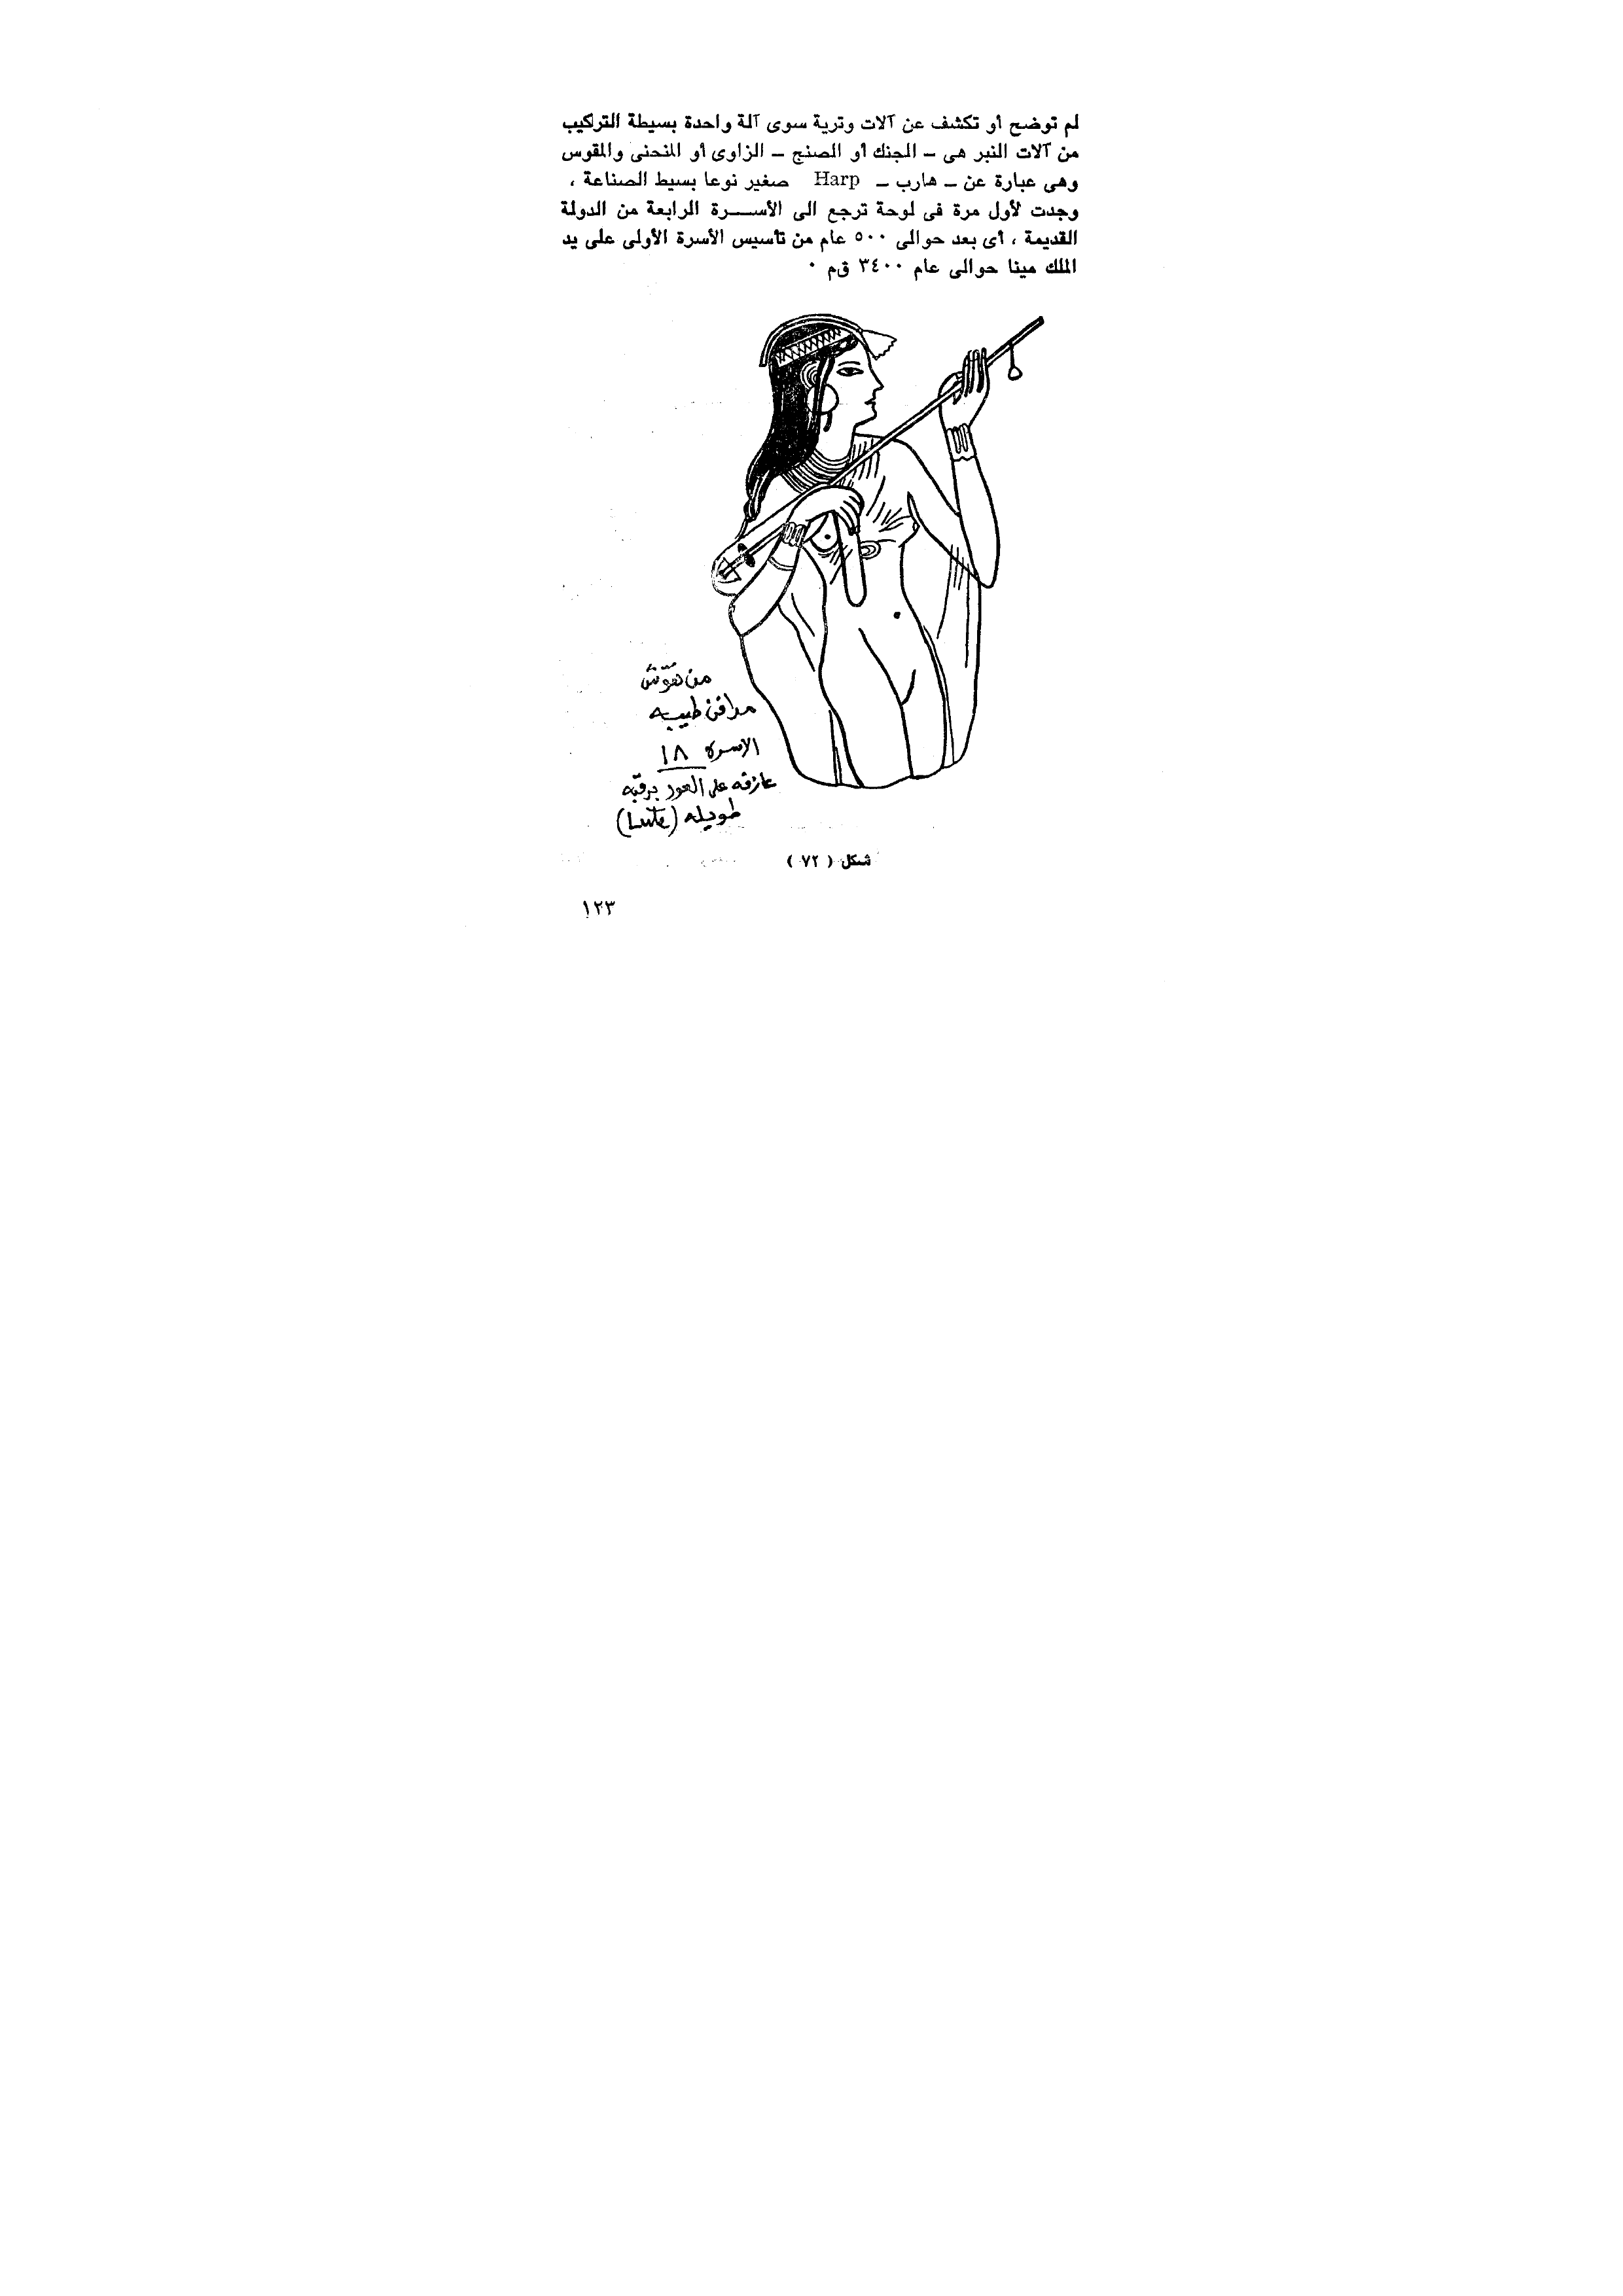 لم توضح أو تكشف عن آلات وترية سوى آلة واحدة بسيطة التركيب
من آلات النبر هى – الجنك أو الصنج – الزاوى أو المنحنى والمقوس
وهى عبارة عن – هارب – Harp صغير نوعا بسيط الصناعة ،
وجدت لأول مرة فى لوحة ترجع الى الأســـرة الرابعة من الدولة
القديمة ، أى بعد حوالى ٥٠٠ عام من تأسيس الأسرة الأولى على يد
الملك مينا حوالى عام ٣٤٠٠ ق٠م ٠
من نقوش
مدافن طيبه
الاسره ١٨
عازفه على العود برقبه
طويله (Lute)
شكل ( ٧٢ )
١٢٣